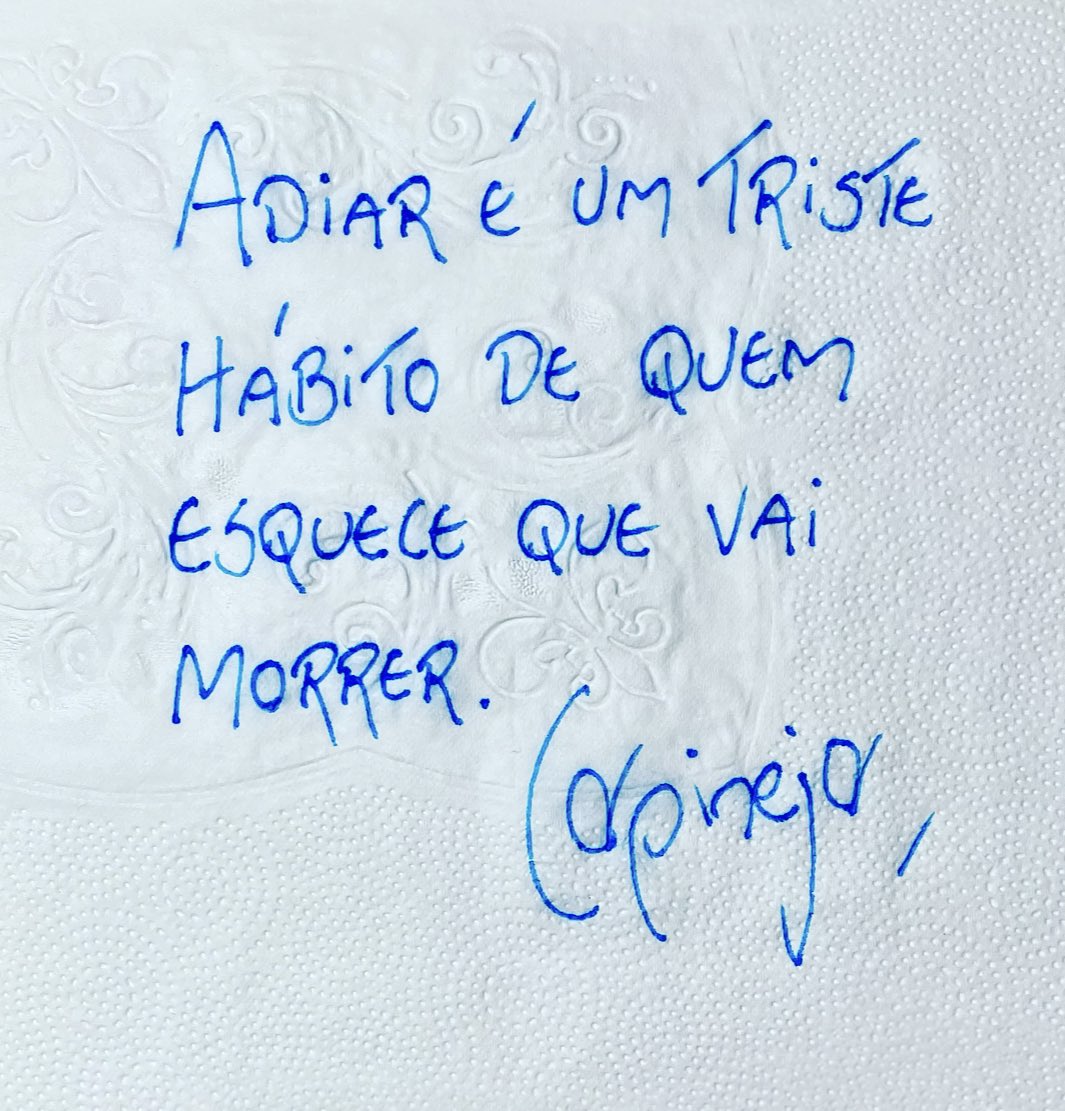 ADiAR É UM TRiSTE
HÁBiTO DE QUEM
ESQUECE QUE VAi
MORRER.
Carpinejar